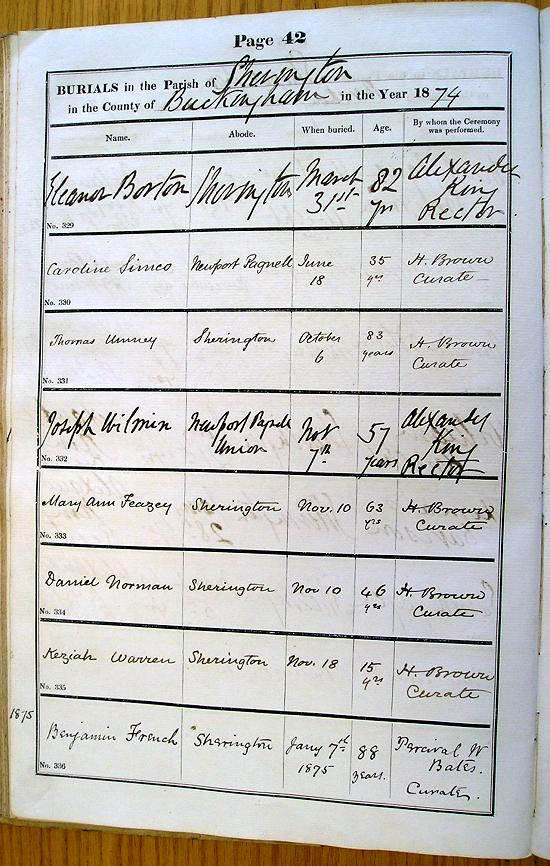 Page 42
BURIALS in the Parish of Sherington
in the County of Buckingham in the Year 1874
Name. Abode. When buried. Age. By whom the Ceremony was performed.
Eleanor Borton Sherington March 31st 82 yrs Alexander King Rector.
No. 329
Caroline Simco Newport Pagnell June 18 35 yrs H. Brown Curate
No. 330
Thomas Unney Sherington October 6 83 years H. Brown Curate
No. 331
Joseph Wilmin Newport Pagnell Union Nov 7th 57 years Alexander King Rector
No. 332
Mary Ann Feazey Sherington Nov. 10 63 yrs H. Brown Curate
No. 333
Daniel Norman Sherington Nov 10 46 yrs H. Brown Curate
No. 334
Keziah Warren Sherington Nov. 18 15 yrs H. Brown Curate
No. 335
1875
Benjamin French Sherington Jany 7th 1875 88 years. Percival W Bates. Curate.
No. 336